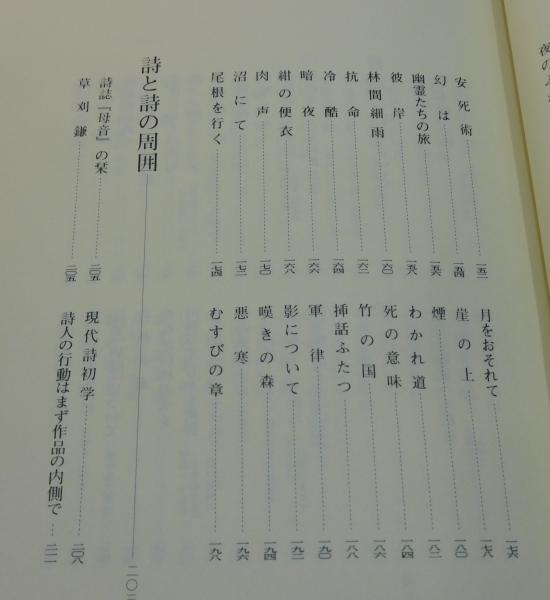 安死術 一五二
幻は 一五四
幽霊たちの旅 一五六
彼岸 一五八
林間細雨 一六〇
抗命 一六二
冷酷 一六四
暗夜 一六六
紺の便衣 一六八
肉声 一七〇
沼にて 一七二
尾根を行く 一七四
月をおそれて 一七六
崖の上 一七八
煙 一八〇
わかれ道 一八二
死の意味 一八四
竹の国 一八六
挿話ふたつ 一八八
軍律 一九〇
影について 一九二
嘆きの森 一九四
悪寒 一九六
むすびの章 一九八
詩と詩の周囲
詩誌『母音』の栞 二〇五
草刈鎌 二〇五
現代詩初学 二〇八
詩人の行動はまず作品の内側で 二一一